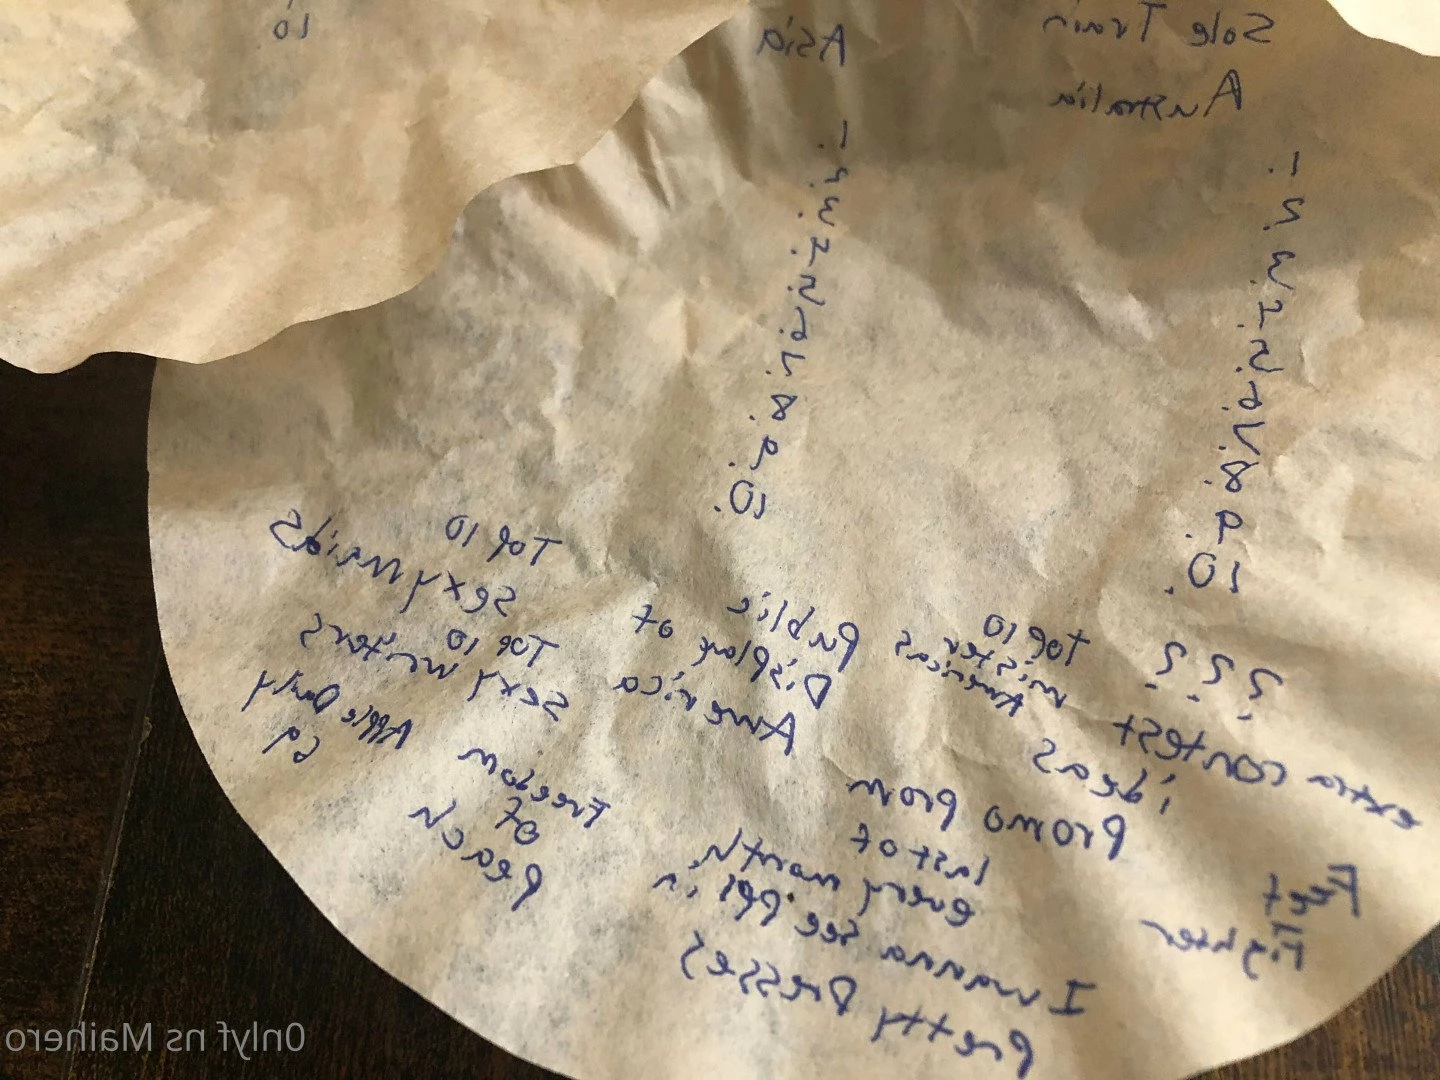 10
Asia
1.
2.
3.
4.
5.
6.
7.
8.
9.
10.
Sole Train
Australia
1.
2.
3.
4.
5.
6.
7.
8.
9.
10.
Top 10
sexy maids
Top 10
sexy writers
Apple Daily
Ed
Freedom
of
peach
Public
Display of
America
Top 10
misters
Americas
???
extra contest
ideas
promo prom
last of
every month.
I wanna see ppl in
pretty Dresses
Feet
Fighter
Onlyf ns Maihero